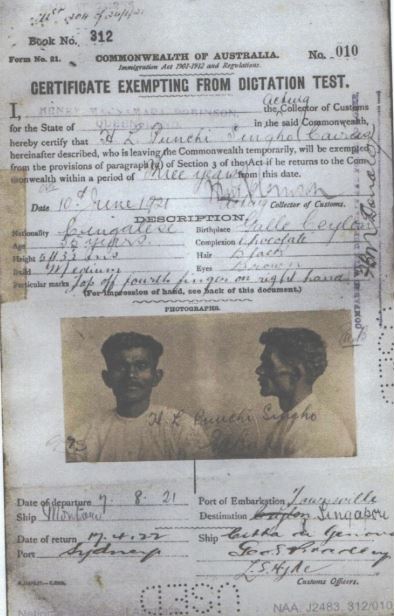 Book No. 312
Form No. 21. COMMONWEALTH OF AUSTRALIA. No. 010
Immigration Act 1901-1912 and Regulations.
CERTIFICATE EXEMPTING FROM DICTATION TEST.
Acting
I, HENRY ROBINSON the Collector of Customs
for the State of QUEENSLAND in the said Commonwealth,
hereby certify that H L Punchi Singho (Cairns)
hereinafter described, who is leaving the Commonwealth temporarily, will be exempted
from the provisions of paragraph (a) of Section 3 of the Act if he returns to the Com-
monwealth within a period of three years from this date.
Date 10th June 1921 Acting Collector of Customs.
DESCRIPTION.
Nationality Cingalese Birthplace Galle Ceylon
Age years Complexion Chocolate
Height 5 ft 3½ ins Hair Black
Build Medium Eyes Brown
Particular marks Top off fourth finger on right hand
(For impression of hand, see back of this document.)
PHOTOGRAPHS.
H L Punchi Singho
Date of departure 7. 8. 21 Port of Embarkation Townsville
Ship Montoro Destination Ceylon Singapore
Date of return 17.4.22 Ship
Port Sydney
Customs Officers.
NAA: J2483, 312/010